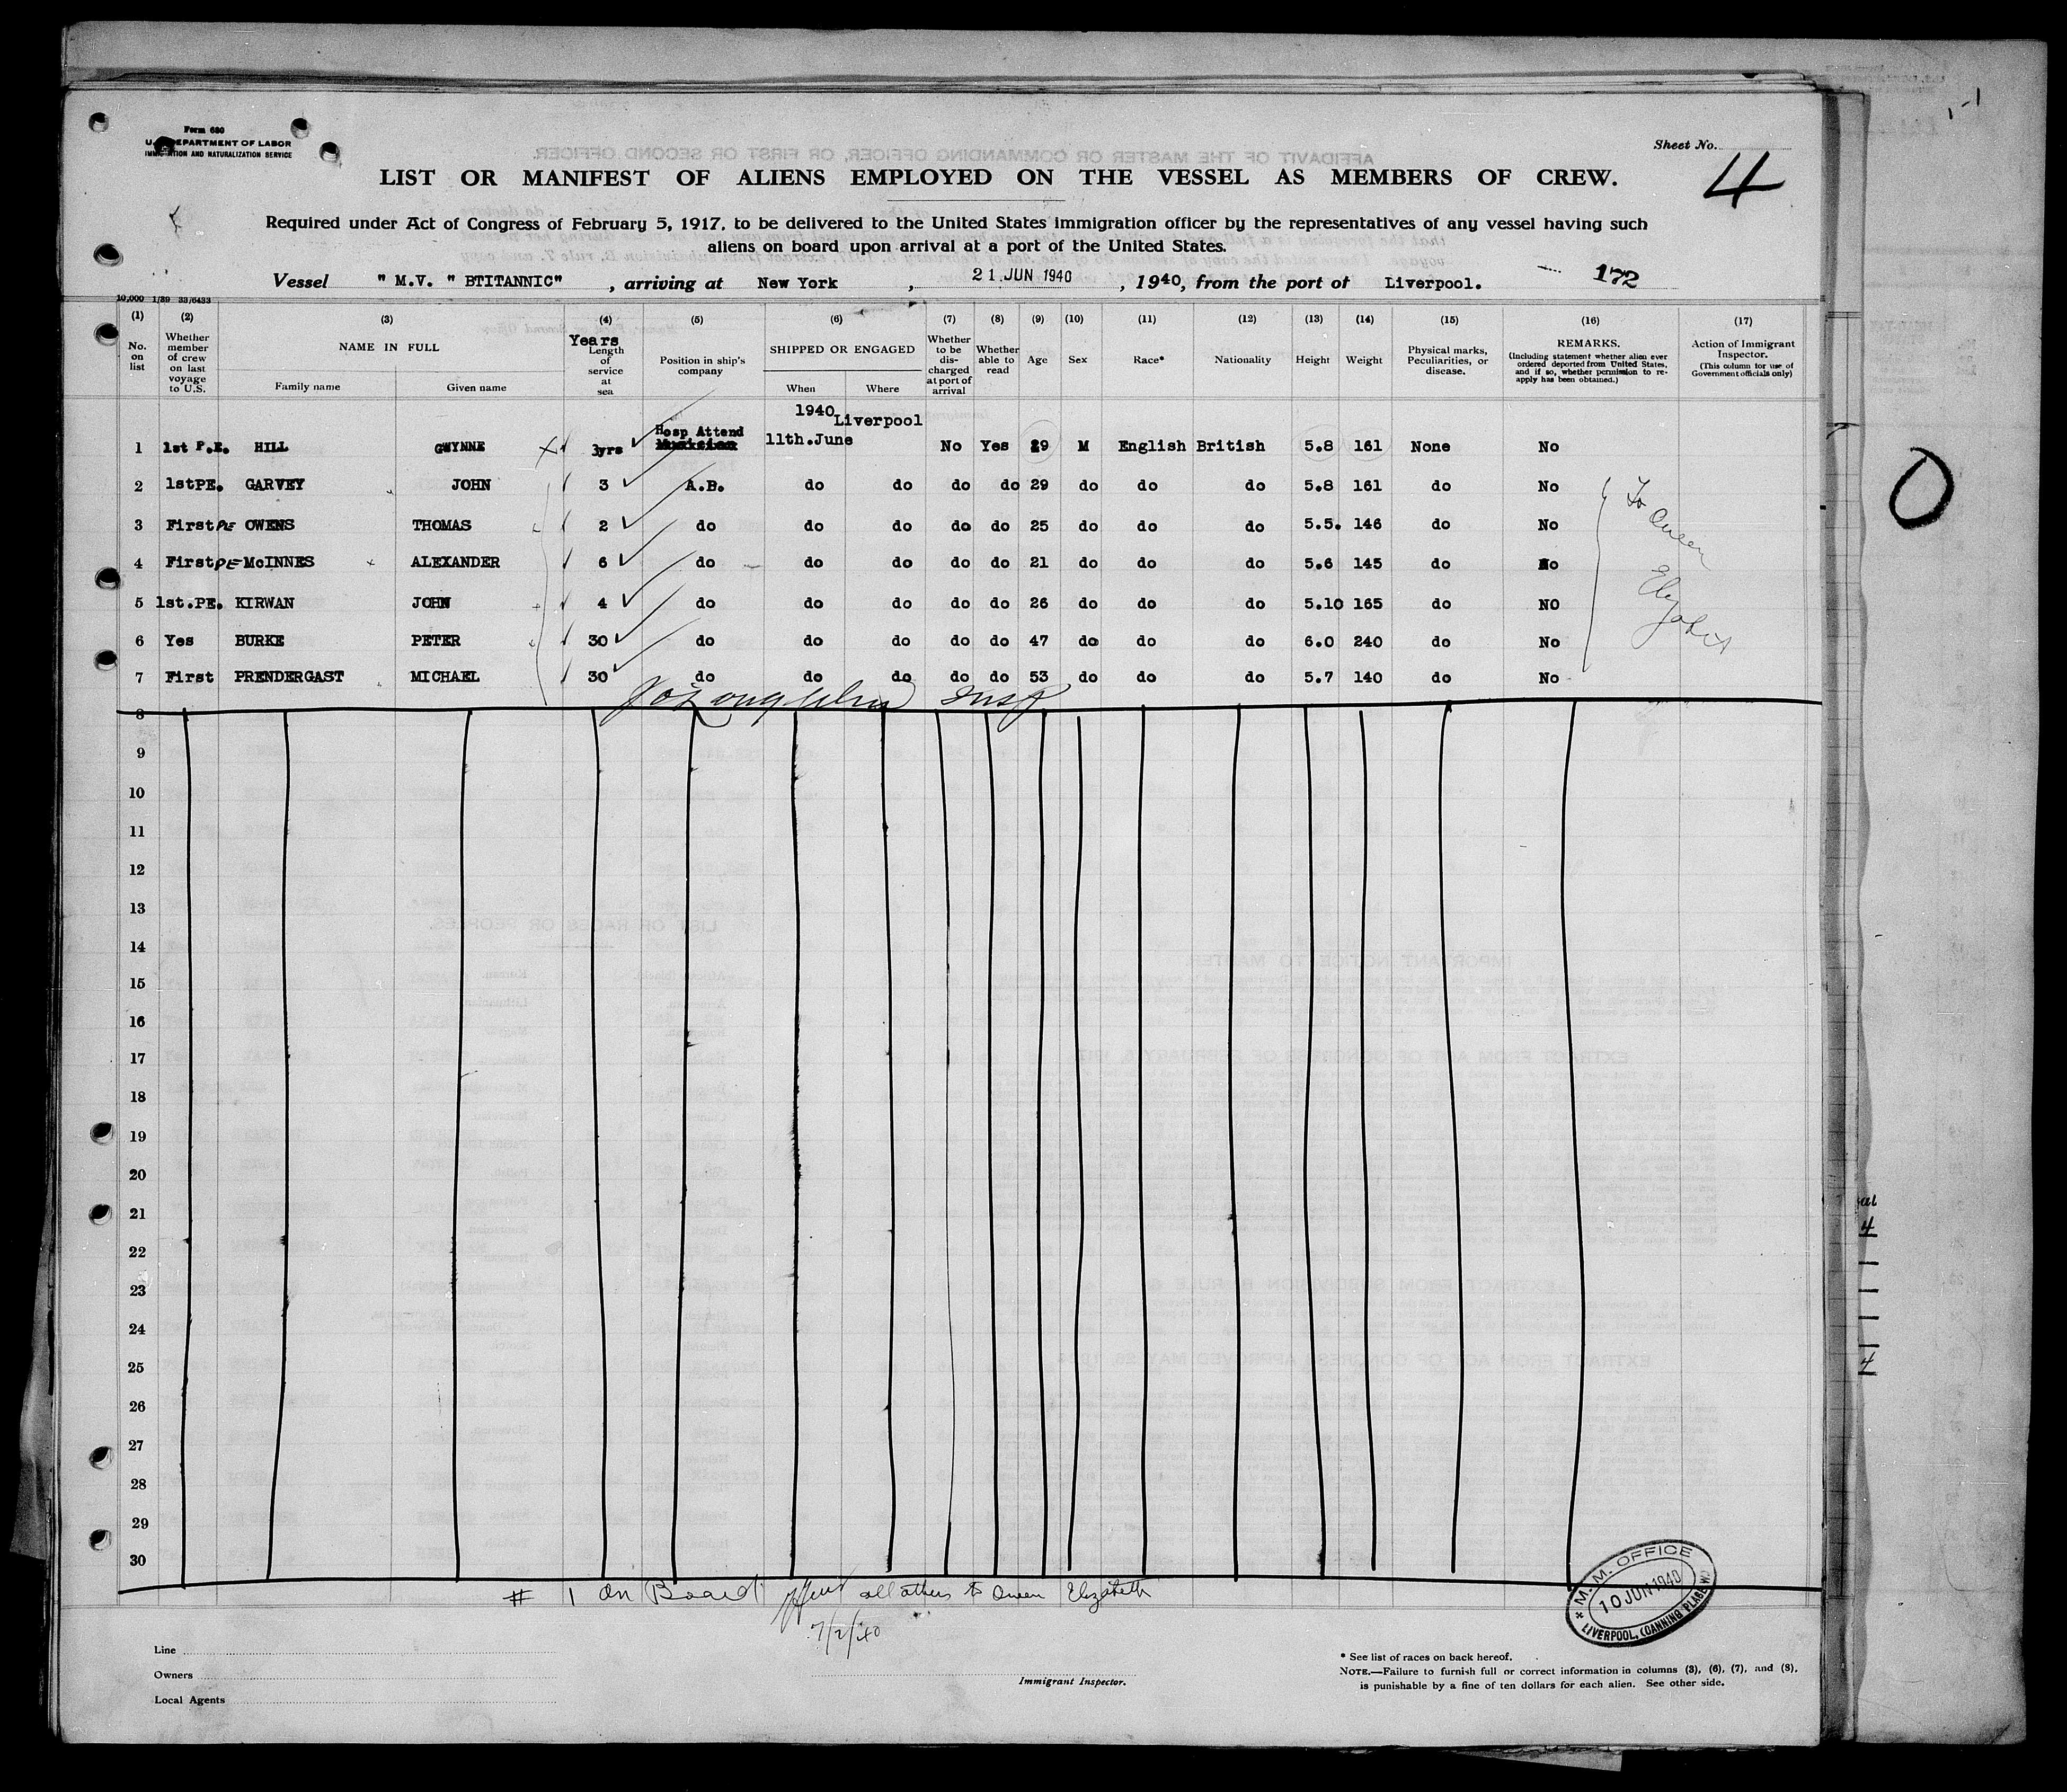 Form 680
U.S. DEPARTMENT OF LABOR
IMMIGRATION AND NATURALIZATION SERVICE
Sheet No. 4
LIST OR MANIFEST OF ALIENS EMPLOYED ON THE VESSEL AS MEMBERS OF CREW.
Required under Act of Congress of February 5, 1917, to be delivered to the United States immigration officer by the representatives of any vessel having such
aliens on board upon arrival at a port of the United States.
Vessel " M.V. " BTITANNIC" , arriving at New York , 21.JUN 1940 , 1940, from the port of Liverpool. 172
10,000 1/39 33/6433
(1) (2) (3) (4) (5) (6) (7) (8) (9) (10) (11) (12) (13) (14) (15) (16) (17)
No. on list
Whether member of crew on last voyage to U.S.
NAME IN FULL
Family name Given name
Years
Length of service at sea
Position in ship's company
SHIPPED OR ENGAGED
When Where
Whether to be discharged at port of arrival
Whether able to read
Age
Sex
Race*
Nationality
Height
Weight
Physical marks, Peculiarities, or disease.
REMARKS.
(Including statement whether alien ever ordered deported from United States, and if so, whether permission to reapply has been obtained.)
Action of Immigrant Inspector.
(This column for use of Government officials only)
1940 Liverpool
1 1st P.E. HILL GWYNNE 3yrs Hosp Attend 11th.June No Yes 29 M English British 5.8 161 None No
2 1stPE. GARVEY JOHN 3 A.B. do do do do 29 do do do 5.8 161 do No
3 First PE OWENS THOMAS 2 do do do do do 25 do do do 5.5. 146 do No
4 First PE McINNES ALEXANDER 6 do do do do do 21 do do do 5.6 145 do No
5 1st.PE. KIRWAN JOHN 4 do do do do do 26 do do do 5.10 165 do NO
6 Yes BURKE PETER 30 do do do do do 47 do do do 6.0 240 do No
7 First PRENDERGAST MICHAEL 30 do do do do do 53 do do do 5.7 140 do No
To Queen
Elizabeth
8
9
10
11
12
13
14
15
16
17
18
19
20
21
22
23
24
25
26
27
28
29
30
# 1 On Board all others to Queen Elizabeth
7/2/40
M. M. OFFICE
10 JUN 1940
LIVERPOOL, (CANNING PLACE)
Line
Owners
Local Agents
Immigrant Inspector.
* See list of races on back hereof.
NOTE.—Failure to furnish full or correct information in columns (3), (6), (7), and (8),
is punishable by a fine of ten dollars for each alien. See other side.